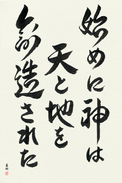 始めに神は
天と地を
創造された